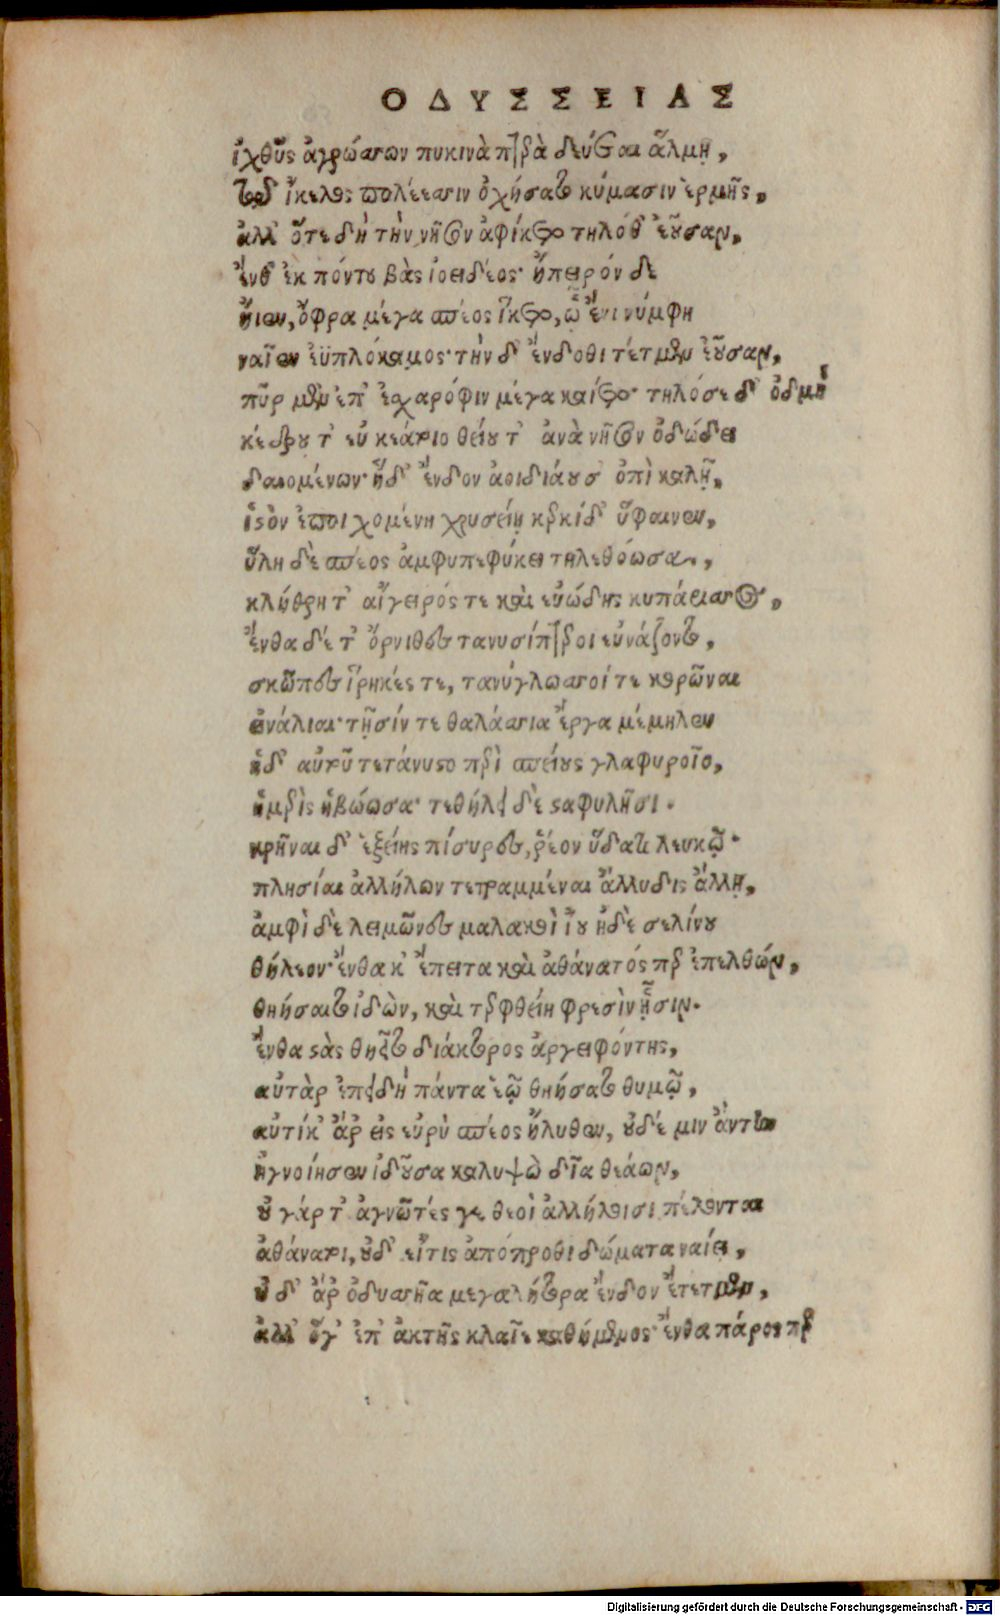 ΟΔΥΣΣΕΙΑΣ
ἰχθῦς ἀγρώσσων πυκινὰ πτερὰ δεύεται ἅλμῃ,
τῷ ἴκελος πολέεσσιν ὀχήσατο κύμασιν ἑρμῆς,
ἀλλ' ὅτε δὴ τὴν νῆσον ἀφίκετο τηλόθ' ἐοῦσαν,
ἔνθ' ἐκ πόντου βὰς ἰοειδέος· ἤπειρόν δε
ἤιεν, ὄφρα μέγα σπέος ἵκετο, ᾧ ἔνι νύμφη
ναῖεν ἐϋπλόκαμος· τὴν δ' ἔνδοθι τέτμεν ἐοῦσαν,
πῦρ μὲν ἐπ' ἐσχαρόφιν μέγα καίετο· τηλόσε δ' ὀδμὴ
κέδρου τ' εὐκεάτοιο θείου τ' ἀνὰ νῆσον ὀδώδει
δαιομένων· ἡδ' ἔνδον ἀοιδιάουσ' ὀπὶ καλῇ,
ἱστὸν ἐποιχομένη χρυσείῃ κερκίδ' ὕφαινεν,
ὕλη δὲ σπέος ἀμφυπεφύκει τηλεθόωσα,
κλήθρη τ' αἴγειρός τε καὶ εὐώδης κυπάρισσος,
ἔνθα δέ τ' ὄρνιθες τανυσίπτεροι εὐνάζοντο,
σκῶπες ἴρηκές τε, τανύγλωσσοί τε κορῶναι
εἰνάλιαι· τῇσίν τε θαλάσσια ἔργα μέμηλεν
ἡδ' αὐτοῦ τετάνυστο περὶ σπείους γλαφυροῖο,
ἡμερὶς ἡβώωσα· τεθήλει δὲ σταφυλῇσι.
κρῆναι δ' ἑξείης πίσυρες, ῥέον ὕδατι λευκῷ·
πλησίαι ἀλλήλων τετραμμέναι ἄλλυδις ἄλλῃ,
ἀμφὶ δὲ λειμῶνες μαλακοὶ ἴου ἠδὲ σελίνου
θήλεον· ἔνθα κ' ἔπειτα καὶ ἀθάνατός περ ἐπελθών,
θηήσαιτο ἰδὼν, καὶ τερφθείη φρεσὶν ᾗσιν.
ἔνθα στὰς θηεῖτο διάκτορος ἀργειφόντης,
αὐτὰρ ἐπειδὴ πάντα ἑῷ θηήσατο θυμῷ,
αὐτίκ' ἄρ' εἰς εὐρὺ σπέος ἤλυθεν, οὐδέ μιν ἄντην
ἠγνοίησεν ἰδοῦσα καλυψὼ δῖα θεάων,
οὐ γάρ τ' ἀγνῶτές γε θεοὶ ἀλλήλοισι πέλονται
ἀθάνατοι, οὐδ' εἴ τις ἀπόπροθι δώματα ναίει,
οὐδ' ἄρ' ὀδυσσῆα μεγαλήτορα ἔνδον ἔτετμεν,
ἀλλ' ὅγ' ἐπ' ἀκτῆς κλαῖε καθήμενος· ἔνθα πάρος περ
Digitalisierung gefördert durch die Deutsche Forschungsgemeinschaft - DFG